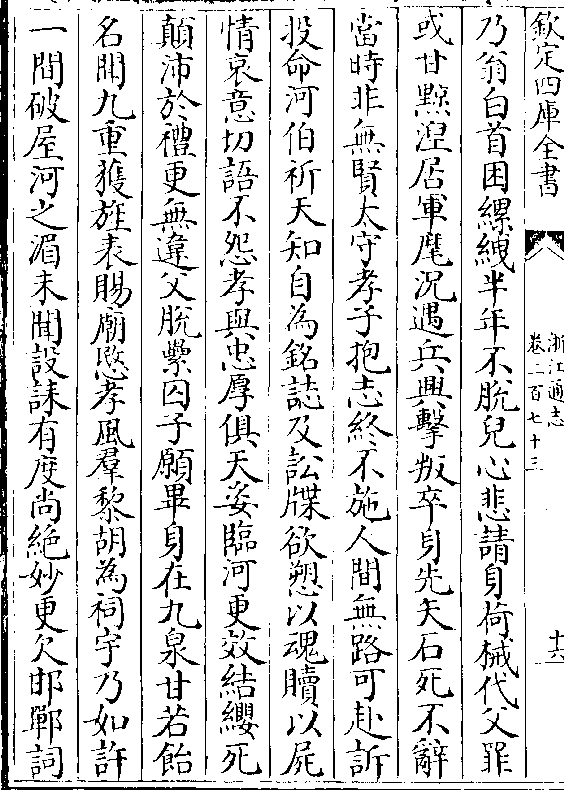 欽定四庫全書
浙江通志
卷二百七十三
十六
乃翁白首困縲絏半年不脫兒心悲請身荷械代父罪
或甘黥涅居軍麾況遇兵興擊叛卒身先矢石死不辭
當時非無賢太守孝子抱志終不施人間無路可赴訴
投命河伯祈天知自為銘誌及訟牒欲愬以魂贖以屍
情哀意切語不怨孝與忠厚俱天姿臨河更效結纓死
顛沛於禮更無違父脫纍囚子願畢身在九泉甘若飴
名聞九重獲旌表賜廟愍孝風羣黎胡為祠宇乃如許
一間破屋河之湄未聞設誄有度尚絶妙更欠邯鄲詞